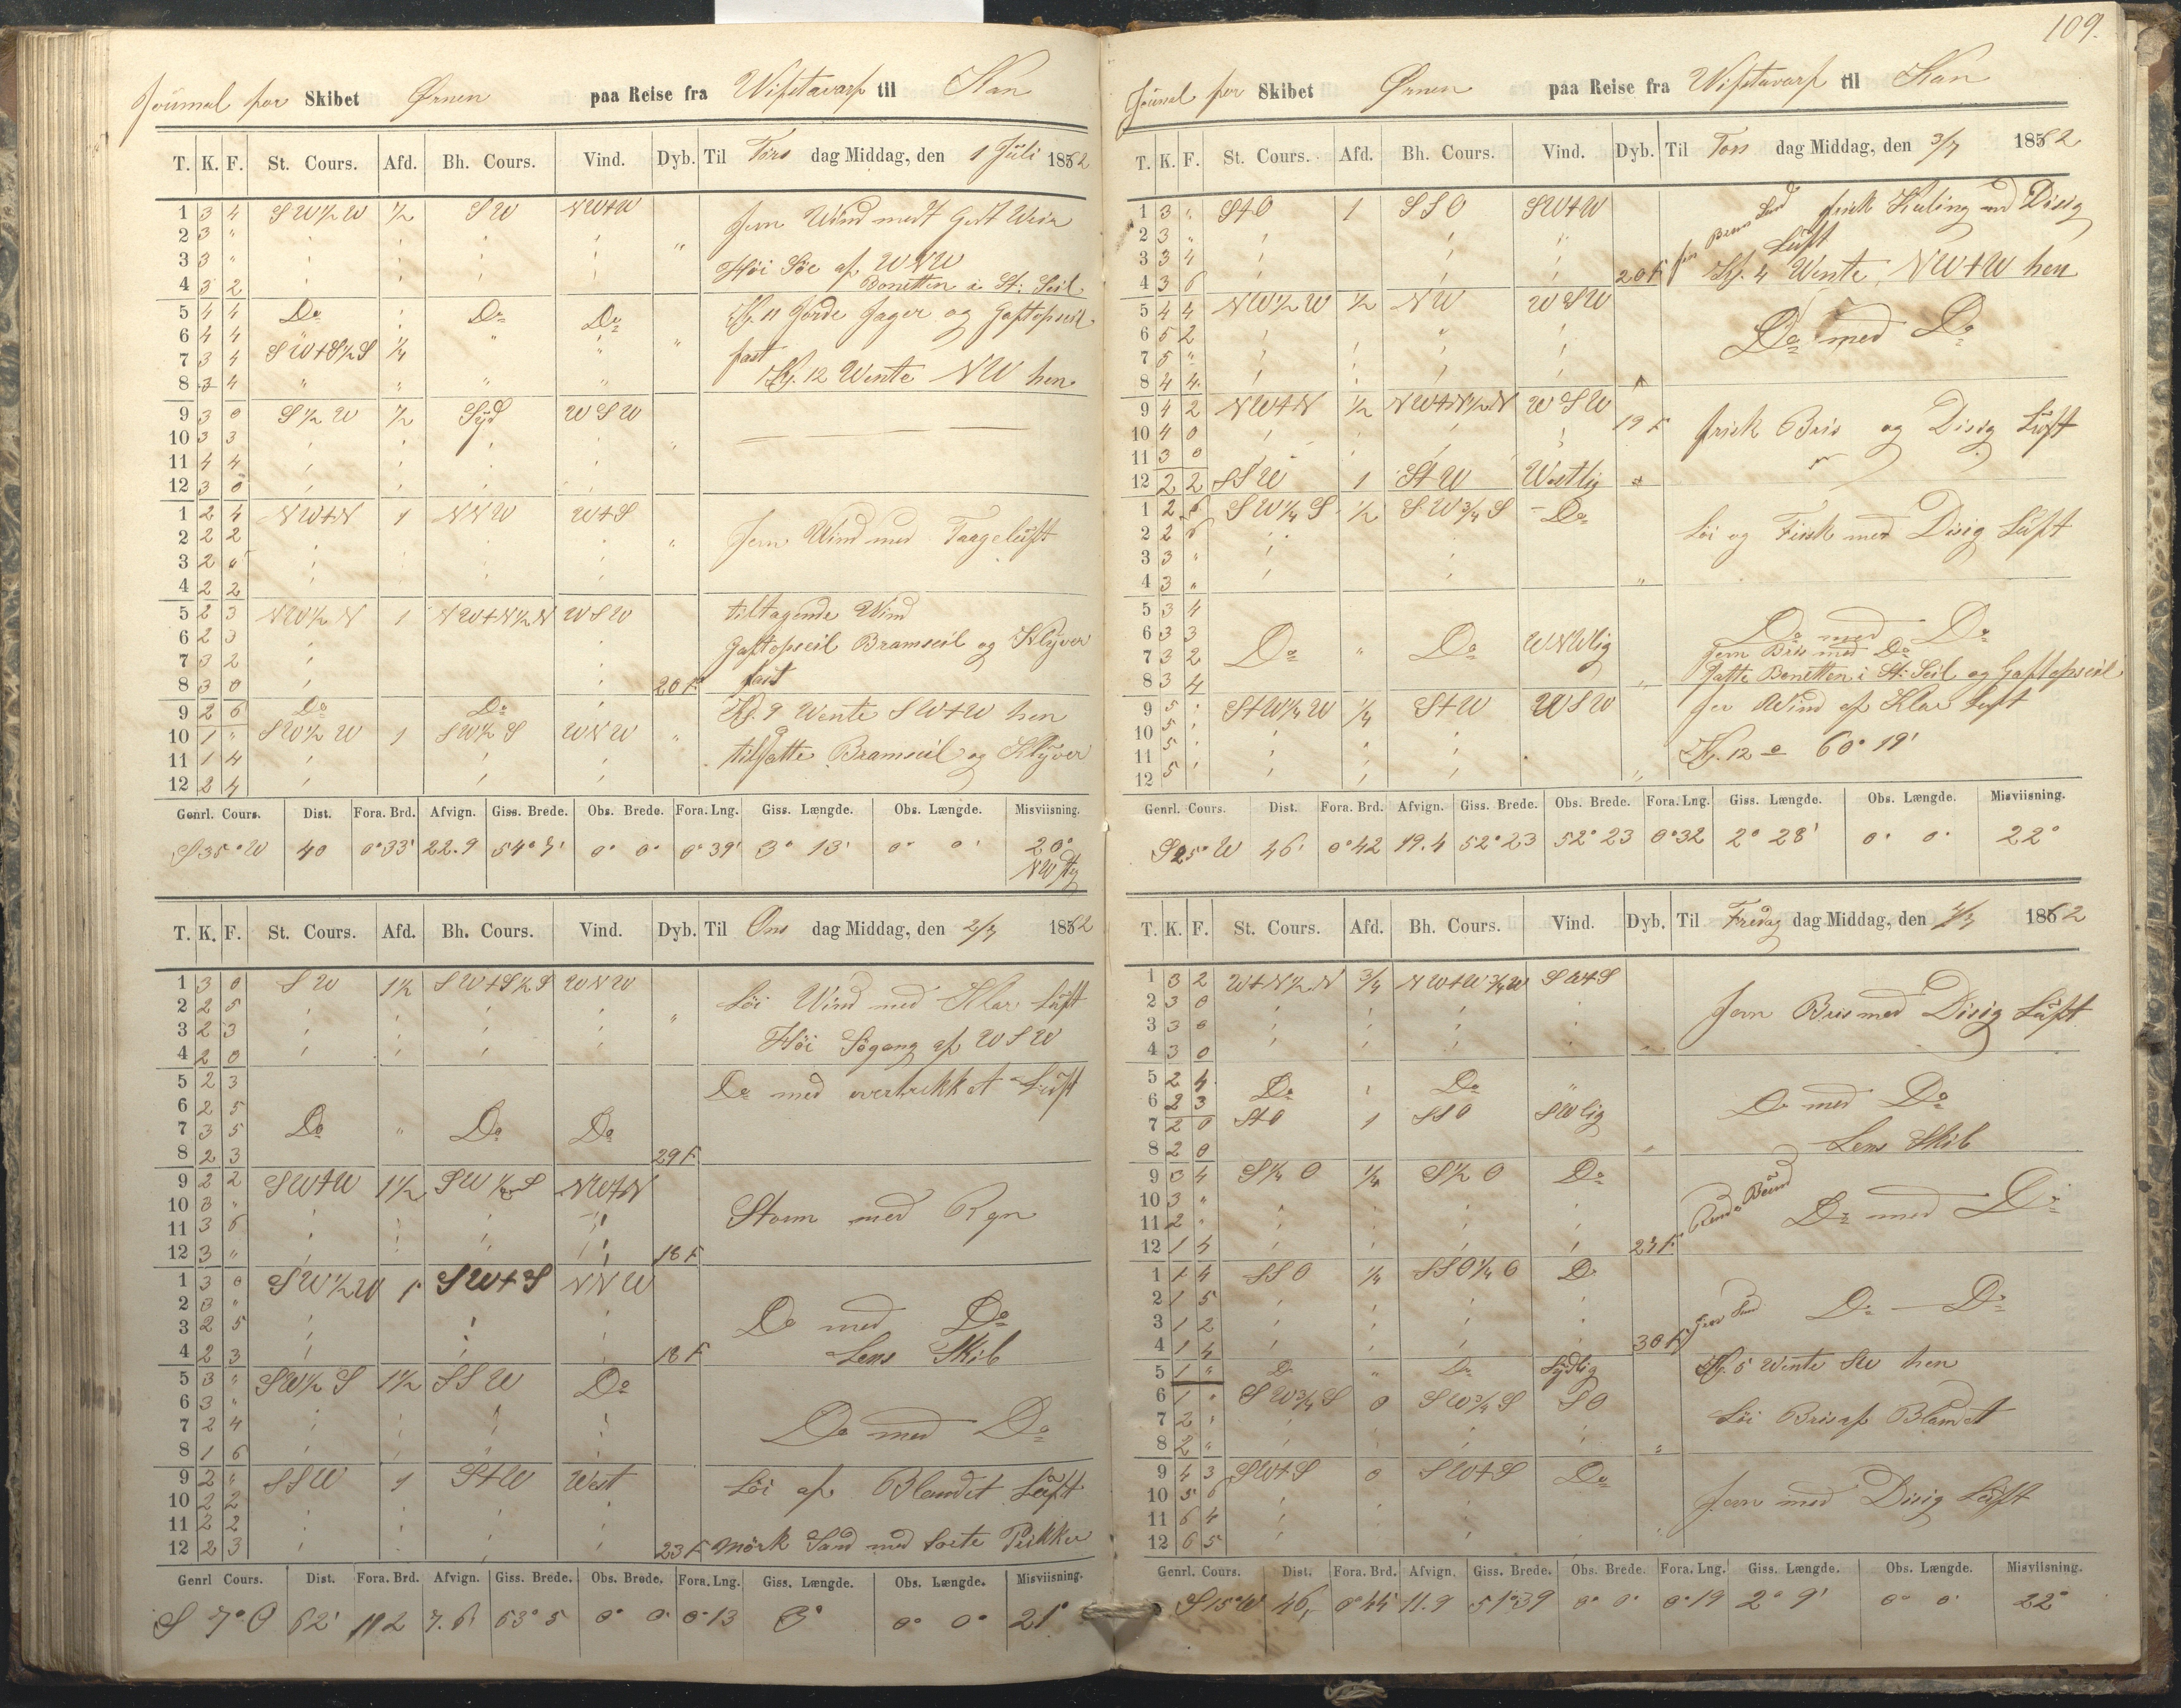 109.
Journal for Skibet Ørnen paa Reise fra Wifstavarf til Kan
T. K. F. St. Cours. Afd. Bh. Cours. Vind. Dyb. Til Tirs dag Middag, den 1 Juli 1862
1 3 4 SW½W ½ SW NWtW Jevn Wind med Godt Weir
2 3 "
3 3 " Høi Söe af WNW
4 3 2 Bonetten i St: Seil
5 4 4 Do Do Do Kl. 11 Gjorde Jager og Gaftopseil
6 4 4
7 3 4 SWtS½S ¼ fast
8 3 4 Kl. 12 Wente NW hen
9 3 0 S½W ½ Syd WSW
10 3 3
11 4 4
12 3 0
1 2 4 NWtN 1 NNW WtS
2 2 2 Jevn Wind med Taageluft
3 2 0
4 2 2
5 2 3 NW½N 1 NWtN½N WSW tiltagende Wind
6 2 3 Gaftopseil Bramseil og Klyver
7 3 2
8 3 0 20 F. fast
9 2 6 Do Do Kl. 9 Wente SWtW hen
10 1 " SW½W 1 SW½S WNW
11 1 4 tilsatte Bramseil og Klyver
12 2 4
Genrl. Cours. Dist. Fora. Brd. Afvign. Giss. Brede. Obs. Brede. Fora. Lng. Giss. Længde. Obs. Længde. Misviisning.
S 35° W 40 0°33' 22.9 54°7' 0° 0° 0°39' 3° 13' 0° 0' 20°
NWstg
T. K. F. St. Cours. Afd. Bh. Cours. Vind. Dyb. Til Ons dag Middag, den 2/7 1862
1 3 0 SW 1½ SWtS½S WNW
2 2 5 Löi Wind med Klar Luft
3 2 3 Høi Søgang af WSW
4 2 0
5 2 3 Do med overtrekket Luft
6 2 5
7 3 5 Do " Do Do
8 2 3 29 F
9 2 2 SWtW 1½ NWtN
10 3 " Storm med Regn
11 3 6
12 3 " 18 F
1 3 0 SW½W 1 SWtS NNW
2 3 " Do med Do
3 2 5
4 2 3 18 F Lens Skib
5 3 " SW½S 1½ SSW Do
6 3 "
7 2 4 Do med Do
8 1 6
9 2 " SSW 1 StW West Löi af Blandet Luft
10 2 2
11 2 2
12 2 3 23 F Mörk Sand med Sorte Prikker
Genrl Cours. Dist. Fora. Brd. Afvign. Giss. Brede. Obs. Brede. Fora. Lng. Giss. Længde. Obs. Længde. Misviisning.
S 7° O 62' 7.6 53° 5 0° 0° 0°13 3° 0° 0° 21°
Journal for Skibet Ørnen paa Reise fra Wifstavarf til Kan
T. K. F. St. Cours. Afd. Bh. Cours. Vind. Dyb. Til Tors dag Middag, den 3/7 1862
1 3 " StO 1 SSO SWtW fin Brun Sand frisk Kuling med Disig
2 3 " Luft
3 3 4
4 3 6 20 F Kl. 4 Wente NWtW hen
5 4 4 NW½W ½ NW WSW
6 5 2 Do med Do
7 5 "
8 4 4
9 4 2 NWtN ½ NWtN½N WSW 19 F
10 4 0 frisk Bris og Disig Luft
11 3 0
12 2 2 SSW 1 StW Westlig
1 2 6 SW¼S ½ SW¾S Do
2 2 6 Löi og Fersk med Disig Luft
3 3 "
4 3 "
5 3 4
6 3 3 Do med Do
7 3 2 Do " Do WNWlig Jevn Bris med Do
8 3 4 Satte Bonetten i St: Seil og Gaftopseil
9 5 StW¼W ¼ StW WSW Jev Wind af Klar Luft
10 5
11 5 Kl. 12 = 60° 19'
12 5
Genrl. Cours. Dist. Fora. Brd. Afvign. Giss. Brede. Obs. Brede. Fora. Lng. Giss. Længde. Obs. Længde. Misviisning.
S 25° W 46' 0°42 19.4 52°23 52°23 0°32 2° 28' 0° 0° 22°
T. K. F. St. Cours. Afd. Bh. Cours. Vind. Dyb. Til Fredag dag Middag, den 4/7 1862
1 3 2 WtN½N ¾ NWtW¾W SWtS
2 3 0 Jevn Bris med Disig Luft
3 3 0
4 3 0
5 2 4 Do Do
6 2 3 Do med Do
7 2 0 StO 1 SSO SWlig
8 2 0 Lens Skib
9 3 4 S¼O ¼ S½O Do
10 3 " Do med Do
11 2 "
12 1 4 24 F.
1 1 4 SSO ¼ SSO¼O Do
2 1 5 Do — Do
3 1 2
4 1 4 30 F
5 1 " Do " Do Sydlig Kl. 5 Wente SW hen
6 1 " SW¾S 0 SW¾S SO
7 2 Löi Bris af Blandet
8 2 "
9 4 3 SWtS 0 SWtS Do
10 5 6 Jevn med Disig Luft
11 6 4
12 6 5
Genrl. Cours. Dist. Fora. Brd. Afvign. Giss. Brede. Obs. Brede. Fora. Lng. Giss. Længde. Obs. Længde. Misviisning.
S 15° W 46, 0°44 11.9 51°39 0° 0° 0°19 2° 9' 0° 0' 22°